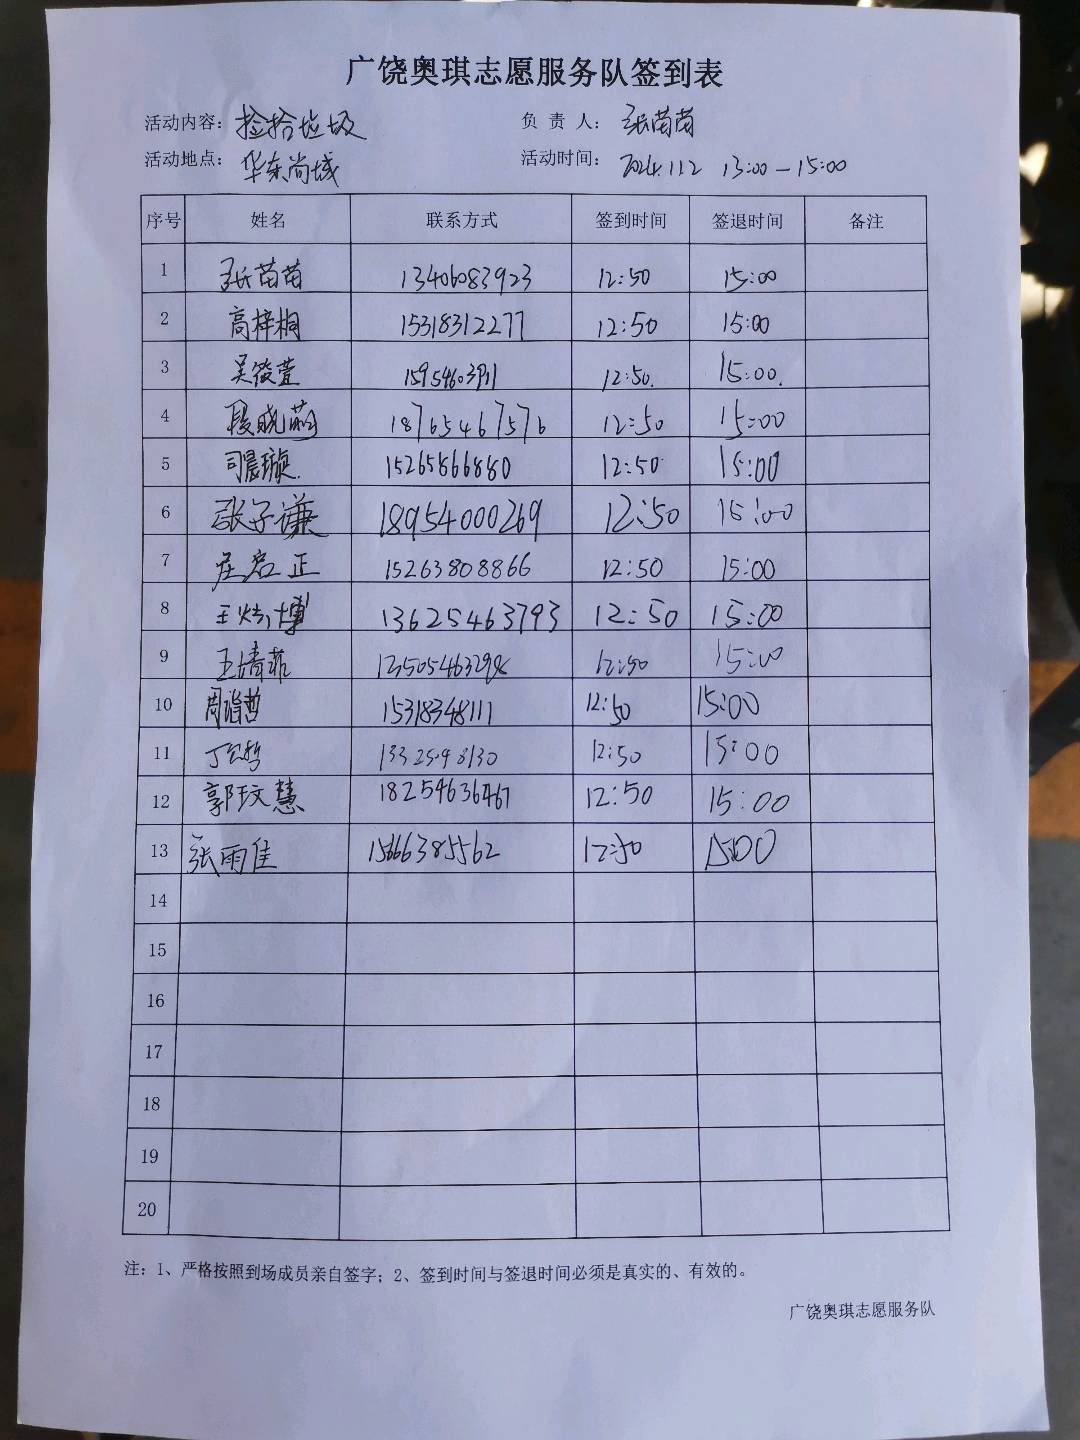 广饶奥琪志愿服务队签到表
活动内容：捡拾垃圾 负责人：张苗苗
活动地点：华东尚城 活动时间：2024.11.2 13:00—15:00
序号 姓名 联系方式 签到时间 签退时间 备注
1 张苗苗 13406083923 12:50 15:00
2 高梓桐 15318312277 12:50 15:00
3 吴筱萱 12:50. 15:00.
4 段晓萌 18765467576 12:50 15:00
5 司晨璇. 15265866880 12:50 15:00
6 张子谦 18954000269 12:50 15:00
7 启正 15263808866 12:50 15:00
8 王 博 13625463793 12:50 15:00
9 王婧菲 12:50 15:00
10 周 哲 15318348111 12:50 15:00
11 12:50 15:00
12 郭玟慧 18254636467 12:50 15:00
13 张雨佳 15666385562 12:50 15:00
14
15
16
17
18
19
20
注：1、严格按照到场成员亲自签字；2、签到时间与签退时间必须是真实的、有效的。
广饶奥琪志愿服务队